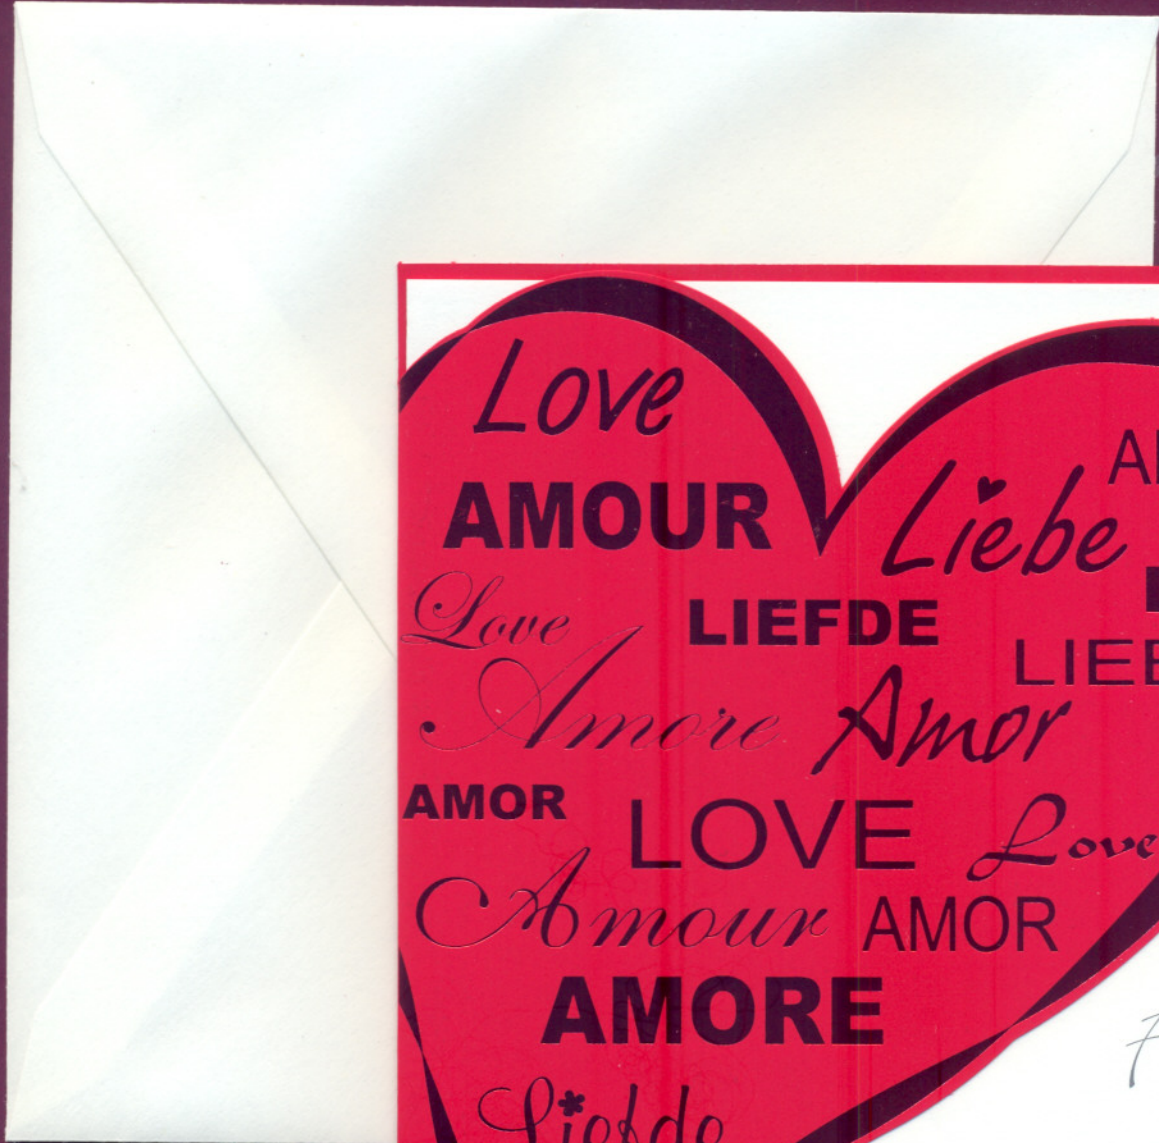 Love
AMOUR
Liebe
Love
LIEFDE
Amore
Amor
AMOR
LOVE
Love
Amour
AMOR
AMORE
Liefde